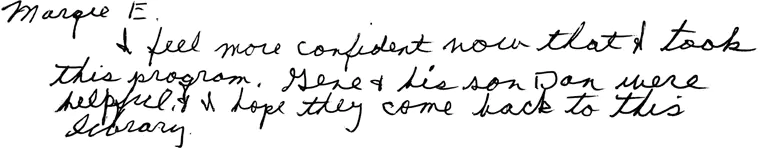 Margie E.
I feel more confident now that I took
this program. Gene & his son Dan were
helpful, & I hope they come back to this
library.